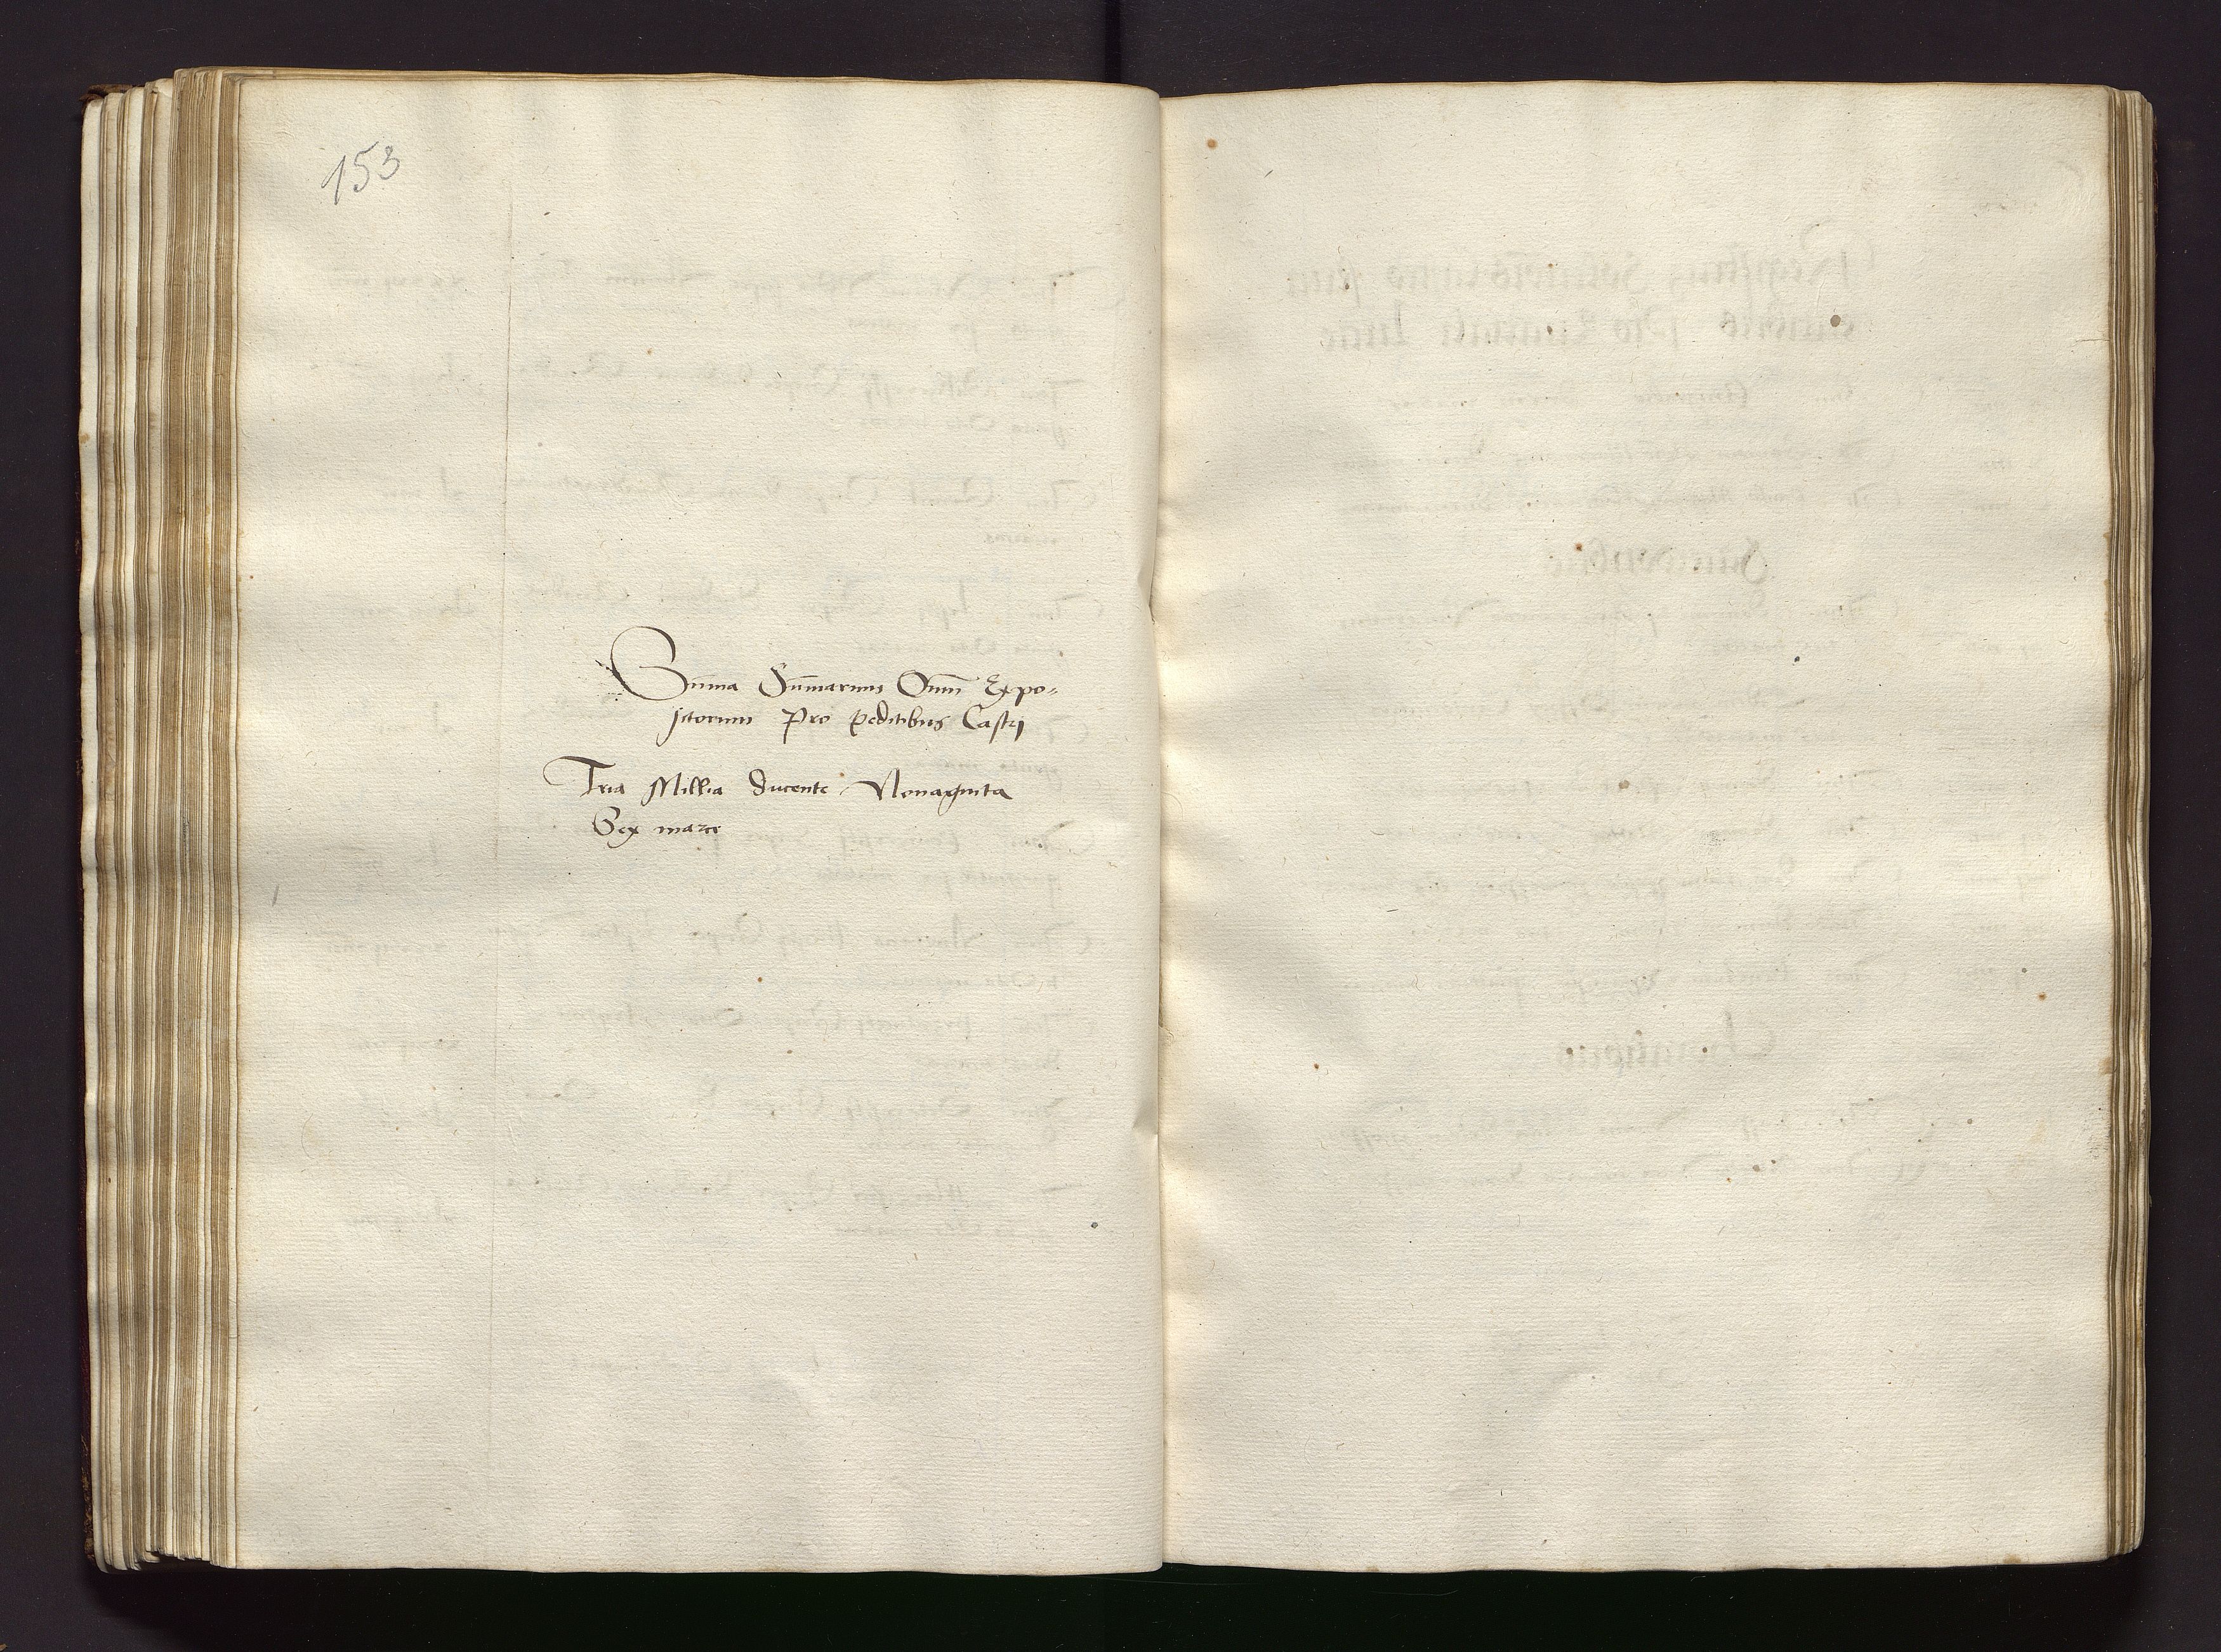 153
Sum̄a Sum̄arum Om̄m Expo=
sitorum Pro peditibus Castrj
Tria Millia ducente Nonaginta
Sex marce